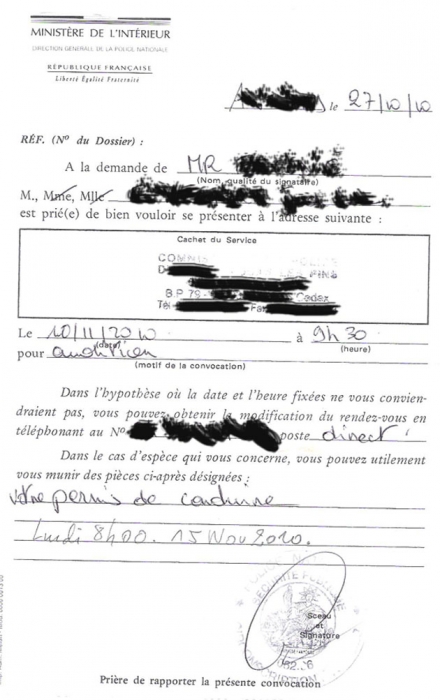 MINISTÈRE DE L'INTÉRIEUR
DIRECTION GÉNÉRALE DE LA POLICE NATIONALE
RÉPUBLIQUE FRANÇAISE
Liberté Égalité Fraternité
le 27/10/10
RÉF. (N° du Dossier) :
A la demande de MR
(Nom, qualité du signataire)
M., Mme, Mlle
est prié(e) de bien vouloir se présenter à l'adresse suivante :
Cachet du Service
PINS
B.P. 79 Cedex
Le 10/11/2010 à 9h30
(date) (heure)
pour audition
(motif de la convocation)
Dans l'hypothèse où la date et l'heure fixées ne vous convien-
draient pas, vous pouvez obtenir la modification du rendez-vous en
téléphonant au N° poste direct
Dans le cas d'espèce qui vous concerne, vous pouvez utilement
vous munir des pièces ci-après désignées :
votre permis de conduire
Lundi 8h00. 15 Nov 2010.
SÉCURITÉ PUBLIQUE
Sceau
et
Signature
Prière de rapporter la présente convocation